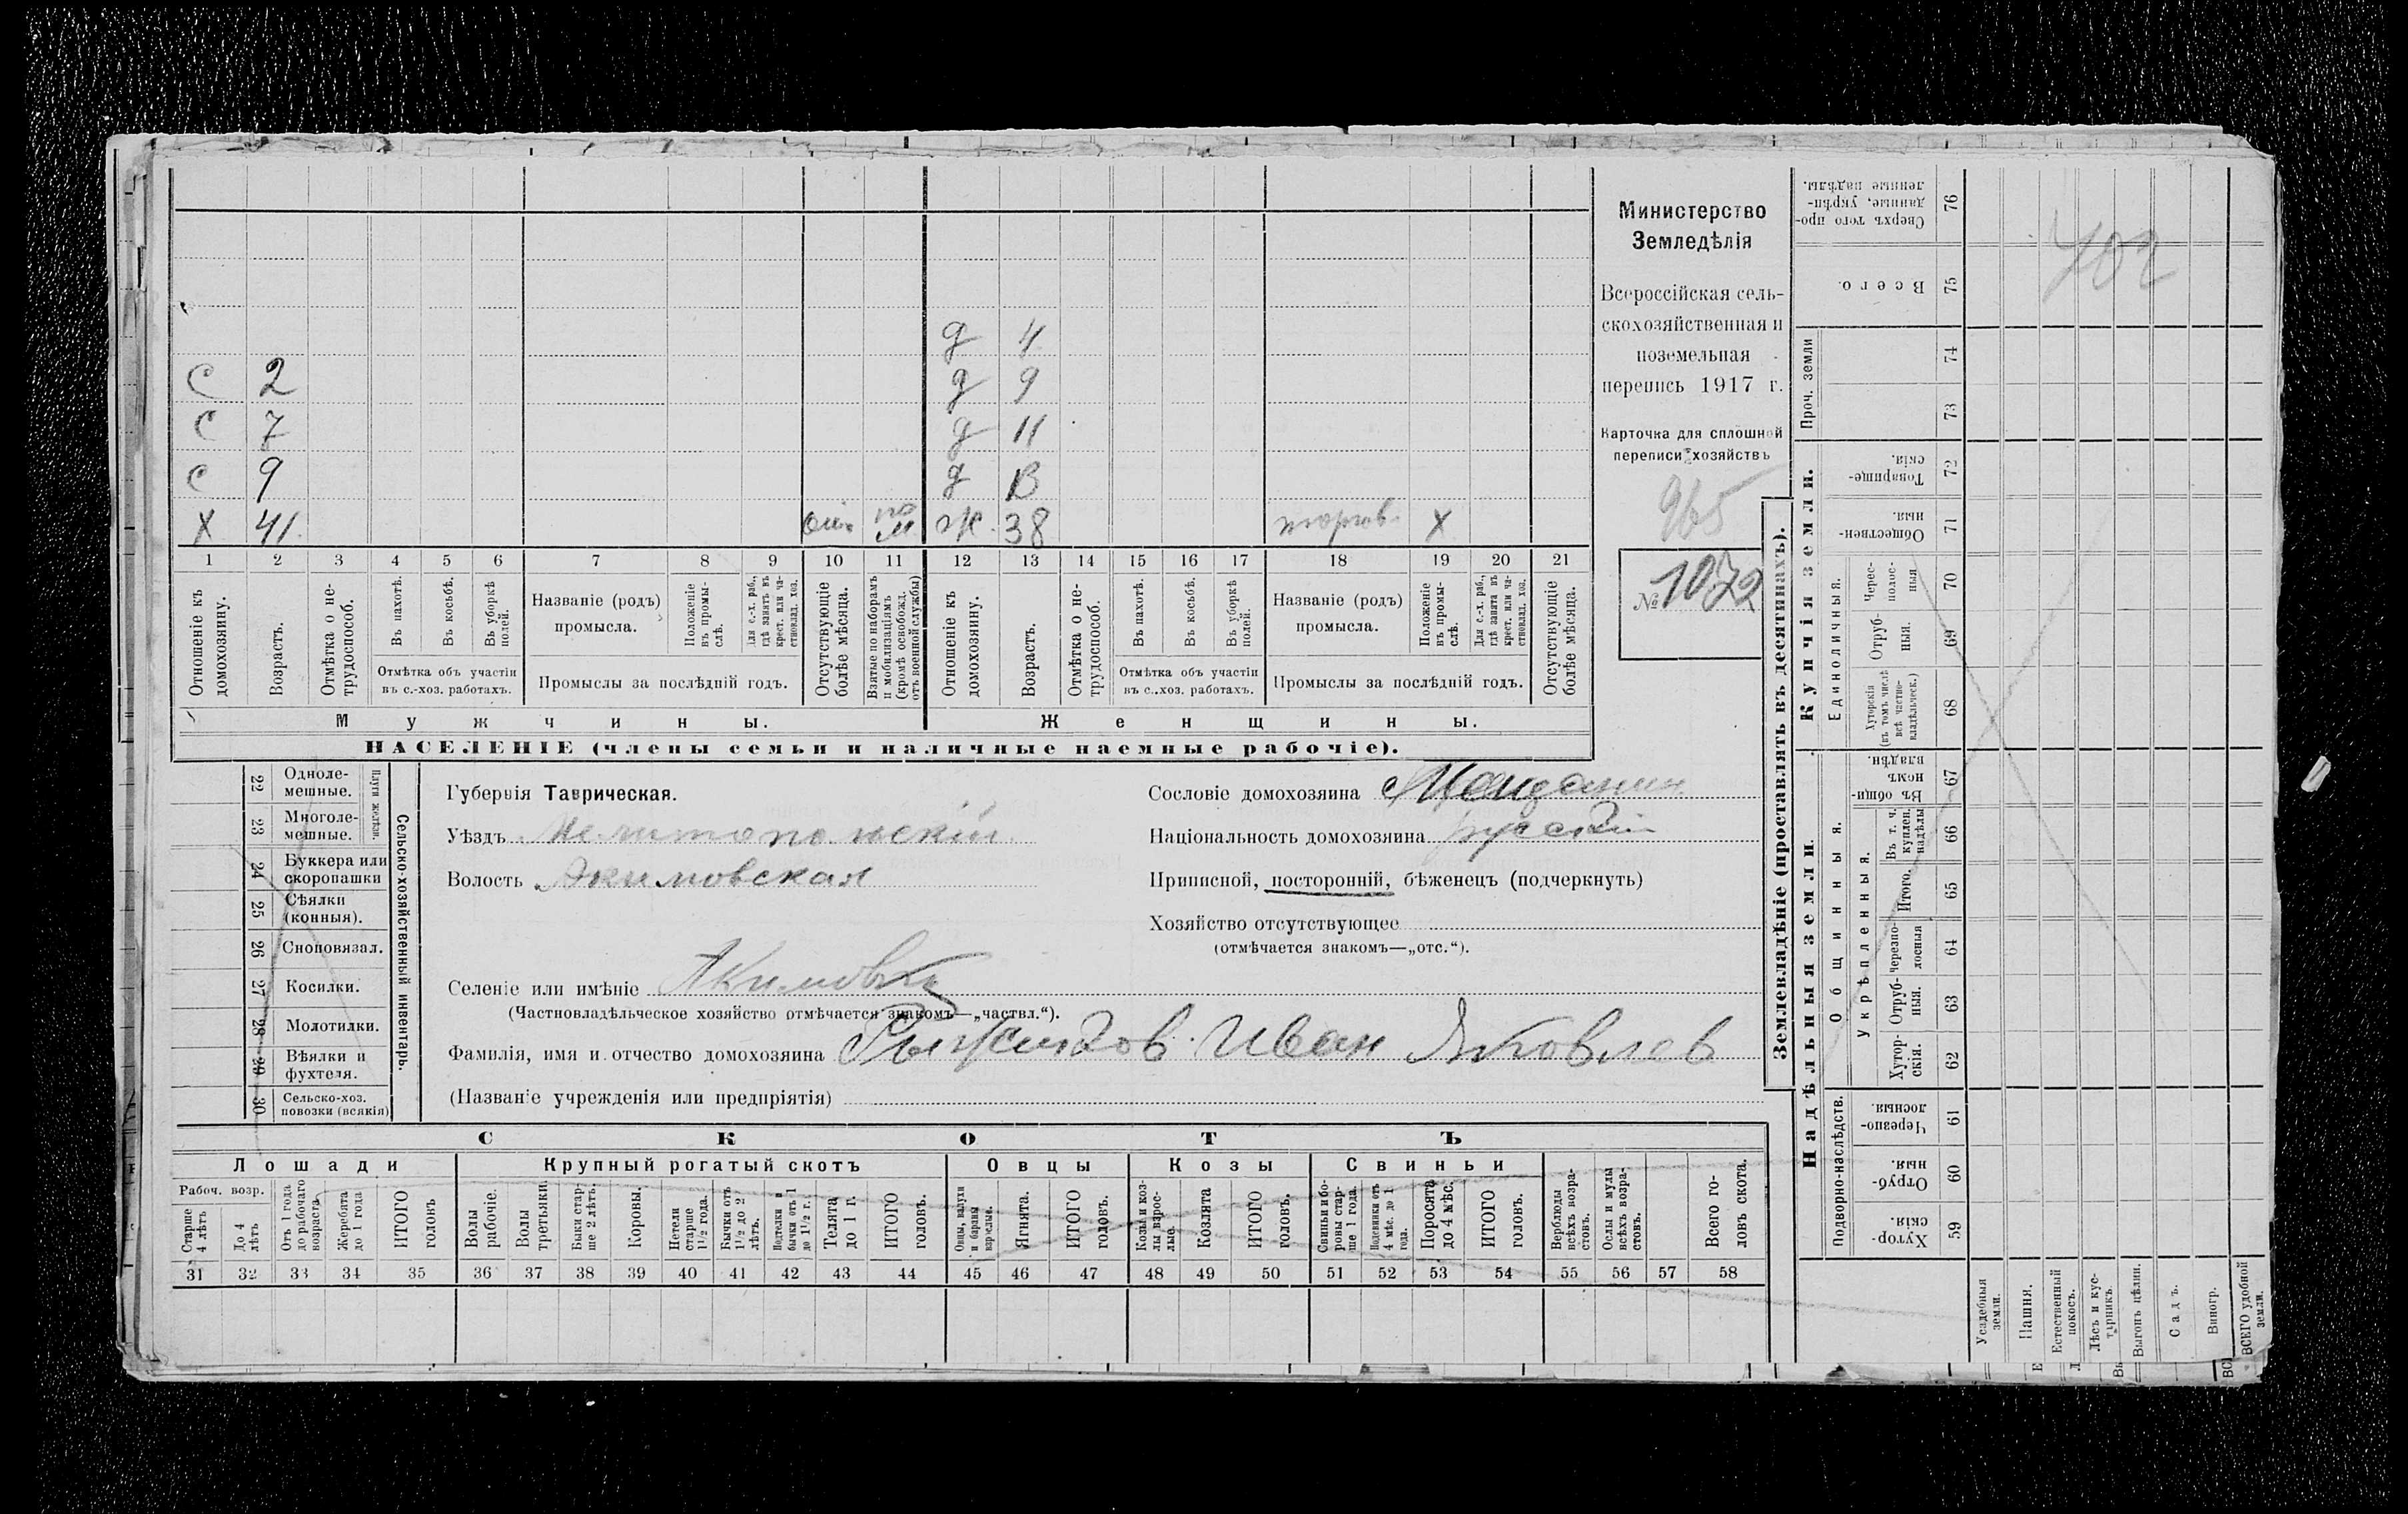 Министерство
Земледѣлія
Всероссійская сель-
скохозяйственная и
поземельная
перепись 1917 г.
Карточка для сплошной
переписи хозяйствъ
965
№ 1072
702
д 4
С 2 д 9
С 7 д 11
С 9 д 13
Х 41 м Ж 38 торгов. Х
1 2 3 4 5 6 7 8 9 10 11 12 13 14 15 16 17 18 19 20 21
Отношеніе къ домохозяину.
Возрастъ.
Отмѣтка о не-трудоспособ.
Въ пахотѣ.
Въ косьбѣ.
Въ уборкѣ полей.
Отмѣтка объ участіи
въ с.-хоз. работахъ.
Названіе (родъ)
промысла.
Положеніе въ промы-слѣ.
Для с.-х. раб., гдѣ занятъ въ крест. или ча-стновлад. хоз.
Промыслы за послѣдній годъ.
Отсутствующіе болѣе мѣсяца.
Взятые по наборамъ и мобилизаціямъ (кромѣ освобожд. отъ военной службы)
Отношеніе къ домохозяину.
Возрастъ.
Отмѣтка о не-трудоспособ.
Въ пахотѣ.
Въ косьбѣ.
Въ уборкѣ полей.
Отмѣтка объ участіи
въ с.-хоз. работахъ.
Названіе (родъ)
промысла.
Положеніе въ промы-слѣ.
Для с.-х. раб., гдѣ занята въ крест. или ча-стновлад. хоз.
Промыслы за послѣдній годъ.
Отсутствующіе болѣе мѣсяца.
Мужчины.
Женщины.
НАСЕЛЕНІЕ (члены семьи и наличные наемные рабочіе).
22 Одноле-
мешные.
23 Многоле-
мешные.
Плуги желѣзн.
24 Буккера или
скоропашки
25 Сѣялки
(конныя).
26 Сноповязал.
27 Косилки.
28 Молотилки.
29 Вѣялки и
фухтеля.
30 Сельско-хоз.
повозки (всякія)
Сельско-хозяйственный инвентарь.
Губернія Таврическая.
Уѣздъ Мелитопольскій
Волость Акимовская
Селеніе или имѣніе Акимовка
(Частновладѣльческое хозяйство отмѣчается знакомъ—„частвл.“).
Фамилія, имя и отчество домохозяина Рыжиков Иван Яковлев
(Названіе учрежденія или предпріятія)
Сословіе домохозяина Мещанин
Національность домохозяина русский
Приписной, посторонній, бѣженецъ (подчеркнуть)
Хозяйство отсутствующее
(отмѣчается знакомъ—„отс.“).
СКОТЪ
Лошади
Крупный рогатый скотъ
Овцы
Козы
Свиньи
Рабоч. возр.
Старше 4 лѣтъ
До 4 лѣтъ
Отъ 1 года до рабочаго возраста
Жеребята до 1 года
ИТОГО головъ
Волы рабочіе.
Волы третьяки.
Быки стар-ше 2 лѣтъ.
Коровы.
Нетели старше 1½ года.
Бычки отъ 1½ до 2 лѣтъ.
Подтелки и бычки отъ 1 до 1½ г.
Телята до 1 г.
ИТОГО головъ.
Овцы, валухи и бараны взрослые.
Ягнята.
ИТОГО головъ.
Козы и коз-лы взрос-лые.
Козлята
ИТОГО головъ.
Свиньи и бо-ровы стар-ше 1 года.
Подсвинки отъ 4 мѣс. до 1 года.
Поросята до 4 мѣс.
ИТОГО головъ.
Верблюды всѣхъ возра-стовъ.
Ослы и мулы всѣхъ возра-стовъ.
Всего го-ловъ скота.
31 32 33 34 35 36 37 38 39 40 41 42 43 44 45 46 47 48 49 50 51 52 53 54 55 56 57 58
Землевладѣніе (проставлять въ десятинахъ).
Надѣльныя земли.
Купчія земли.
Проч. земли
Подворно-наслѣдств.
Общинныя.
Укрѣпленныя.
Единоличныя.
Сверхъ того про-данные, укрѣп-ленные надѣлы. 76
Всего. 75
74
73
Товарище-скія. 72
Обществен-ныя. 71
Черес-полос-ныя 70
Отруб-ныя. 69
Хуторскія (въ томъ числѣ всѣ частно-владѣльческ.) 68
Въ общи-номъ владѣн. 67
Въ т. ч. куплен. надѣлы 66
Итого. 65
черезпо-лосныя 64
Отруб-ныя. 63
Хутор-скія. 62
Черезпо-лосныя. 61
Отруб-ныя. 60
Хутор-скія. 59
Усадебныя земли.
Пашня.
Естественный покосъ.
Лѣсъ и кус-тарникъ.
Выгонъ цѣлин.
Садъ.
Виногр.
ВСЕГО удобной земли.